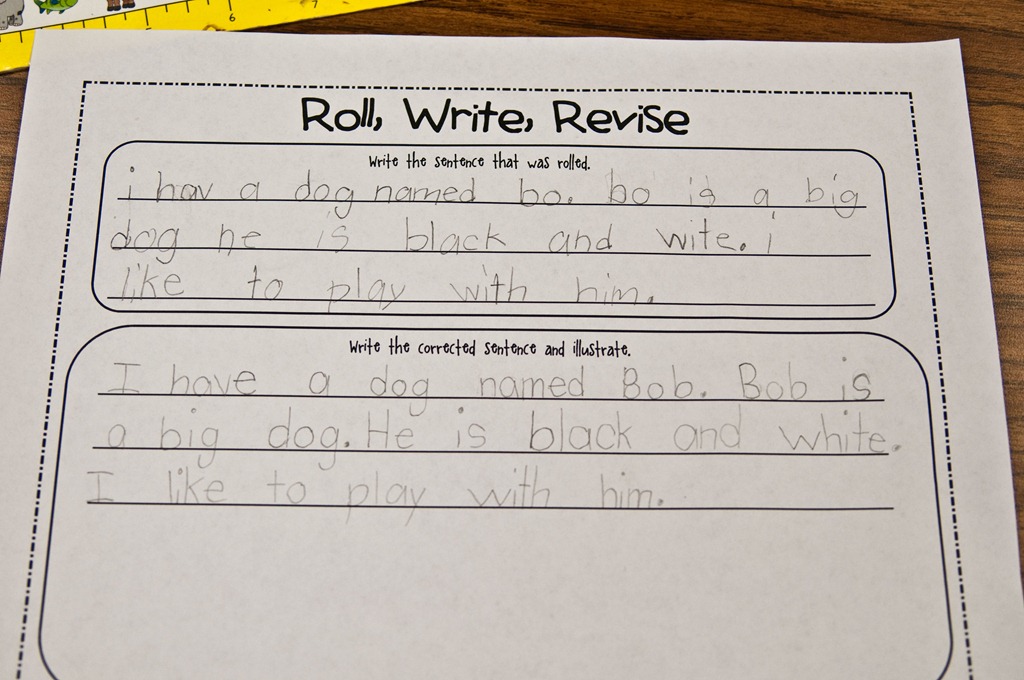 6 7
Roll, Write, Revise
Write the sentence that was rolled.
i hav a dog named bo. bo is a big
dog he is black and wite. i
like to play with him.
Write the corrected sentence and illustrate.
I have a dog named Bob. Bob is
a big dog. He is black and white.
I like to play with him.